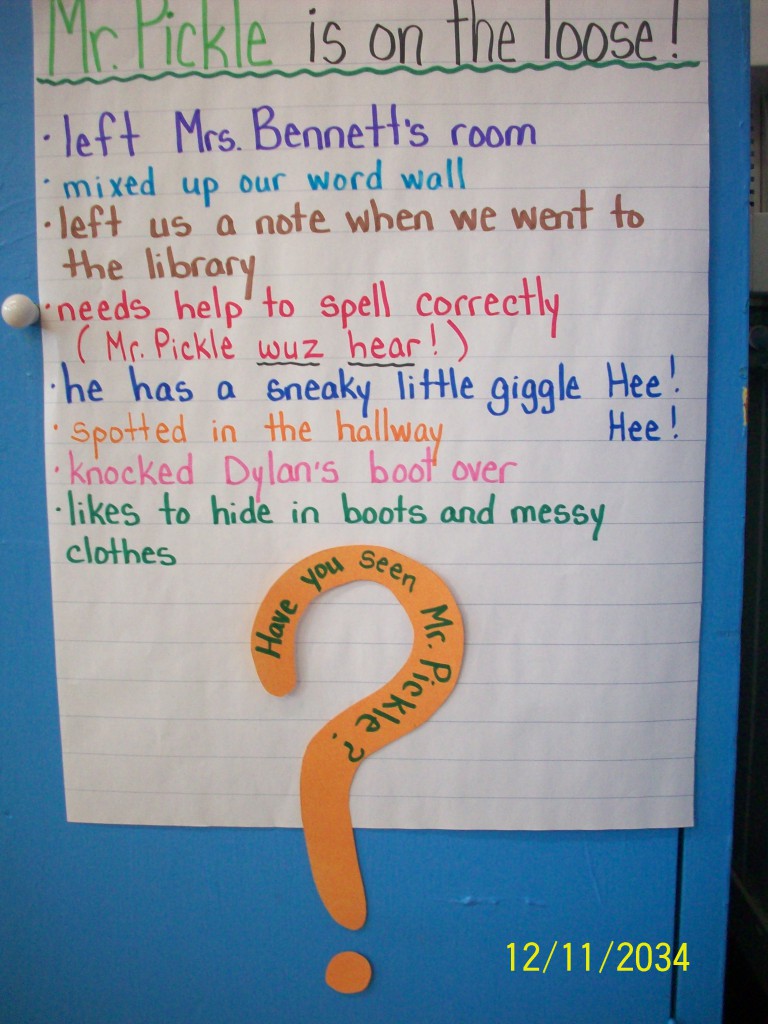 Mr. Pickle is on the loose!
· left Mrs. Bennett's room
· mixed up our word wall
· left us a note when we went to
the library
· needs help to spell correctly
( Mr. Pickle wuz hear! )
· he has a sneaky little giggle Hee!
Hee!
· spotted in the hallway
· knocked Dylan's boot over
· likes to hide in boots and messy
clothes
Have you seen Mr. Pickle?
12/11/2034